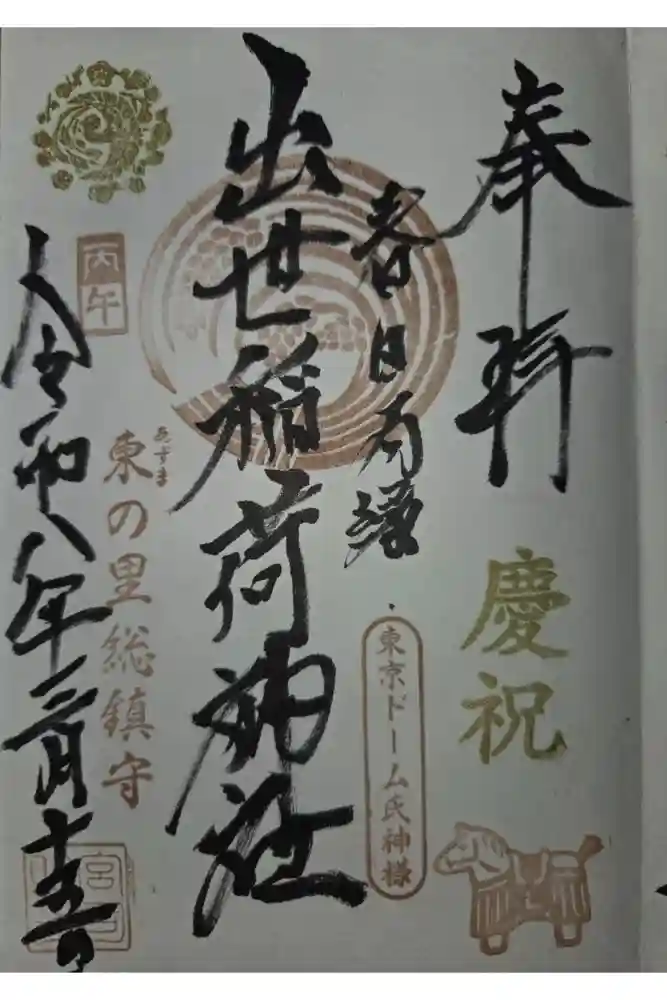 奉拝
慶祝
春日局縁
東京ドーム氏神様
出世稲荷神社
あずま
東の里総鎮守
丙午
令和八年二月十五日